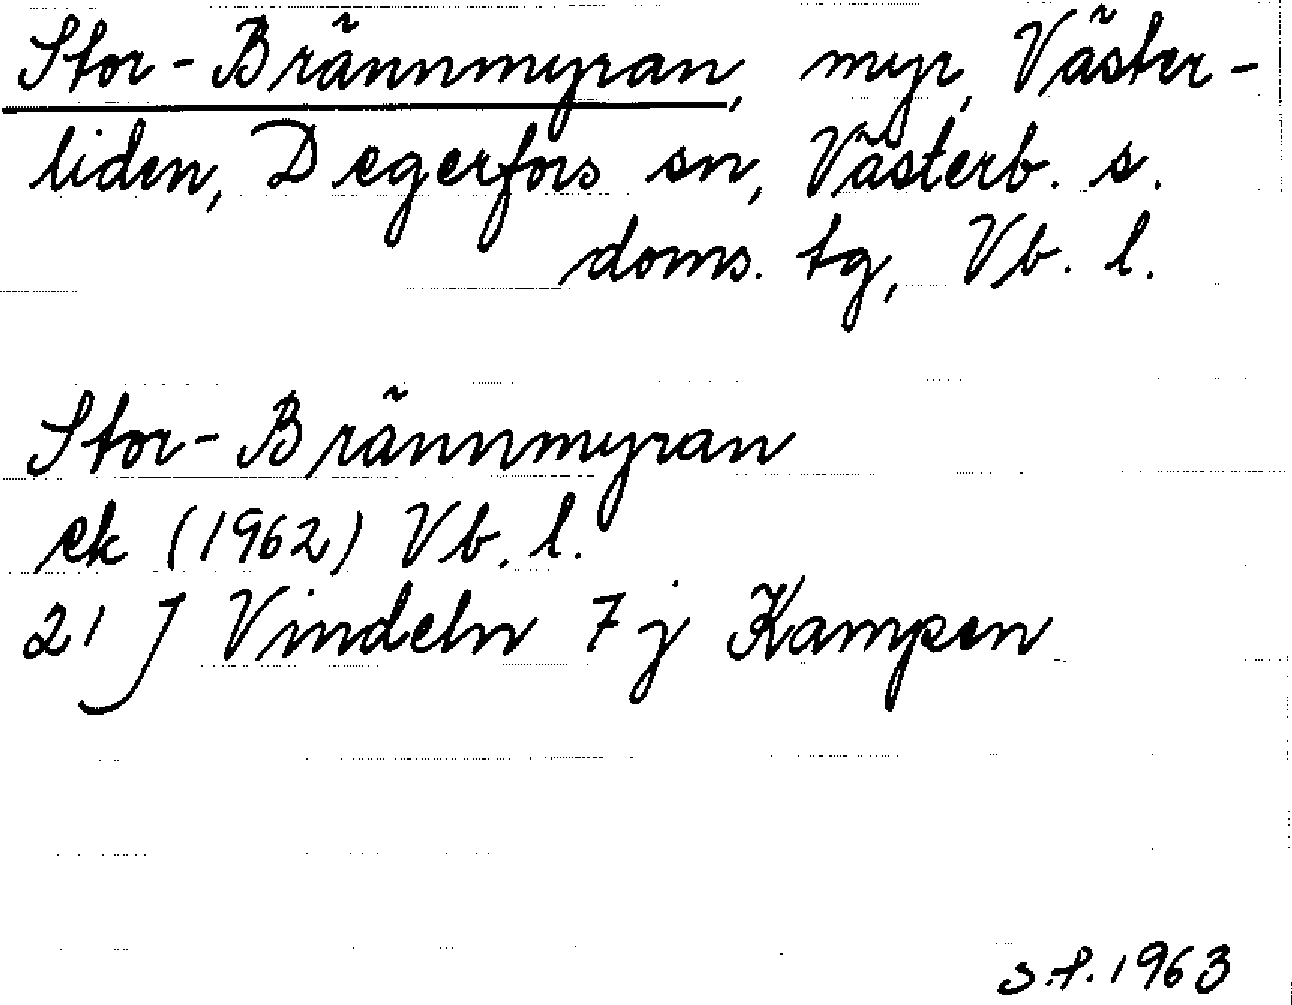 Stor-Brännmyran, myr, Väster-
liden, Degerfors sn, Västerb. s.
doms. tg, Vb. l.
Stor-Brännmyran
ek (1962) Vb. l.
21 J Vindeln 7 j Kampen
1963